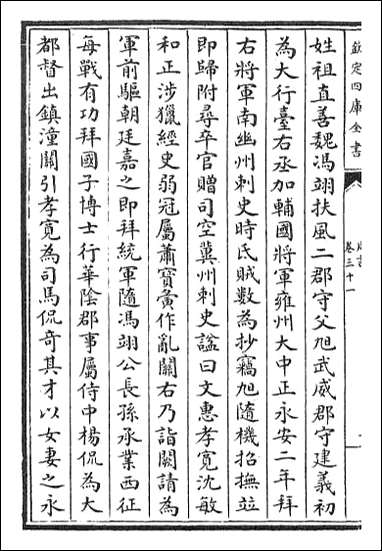 欽定四庫全書
卷三十一
姓祖直善魏馮翊扶風二郡守父旭武威郡守建義初
為大行臺右丞加輔國將軍雍州大中正永安二年拜
右將軍南幽州刺史時氐賊數為抄竊旭隨機招撫並
即歸附尋卒官贈司空冀州刺史諡曰文惠孝寬沈敏
和正涉獵經史弱冠屬蕭寶夤作亂關右乃詣闕請為
軍前驅朝廷嘉之即拜統軍隨馮翊公長孫承業西征
每戰有功拜國子博士行華陰郡事屬侍中楊侃為大
都督出鎮潼關引孝寬為司馬侃奇其才以女妻之永